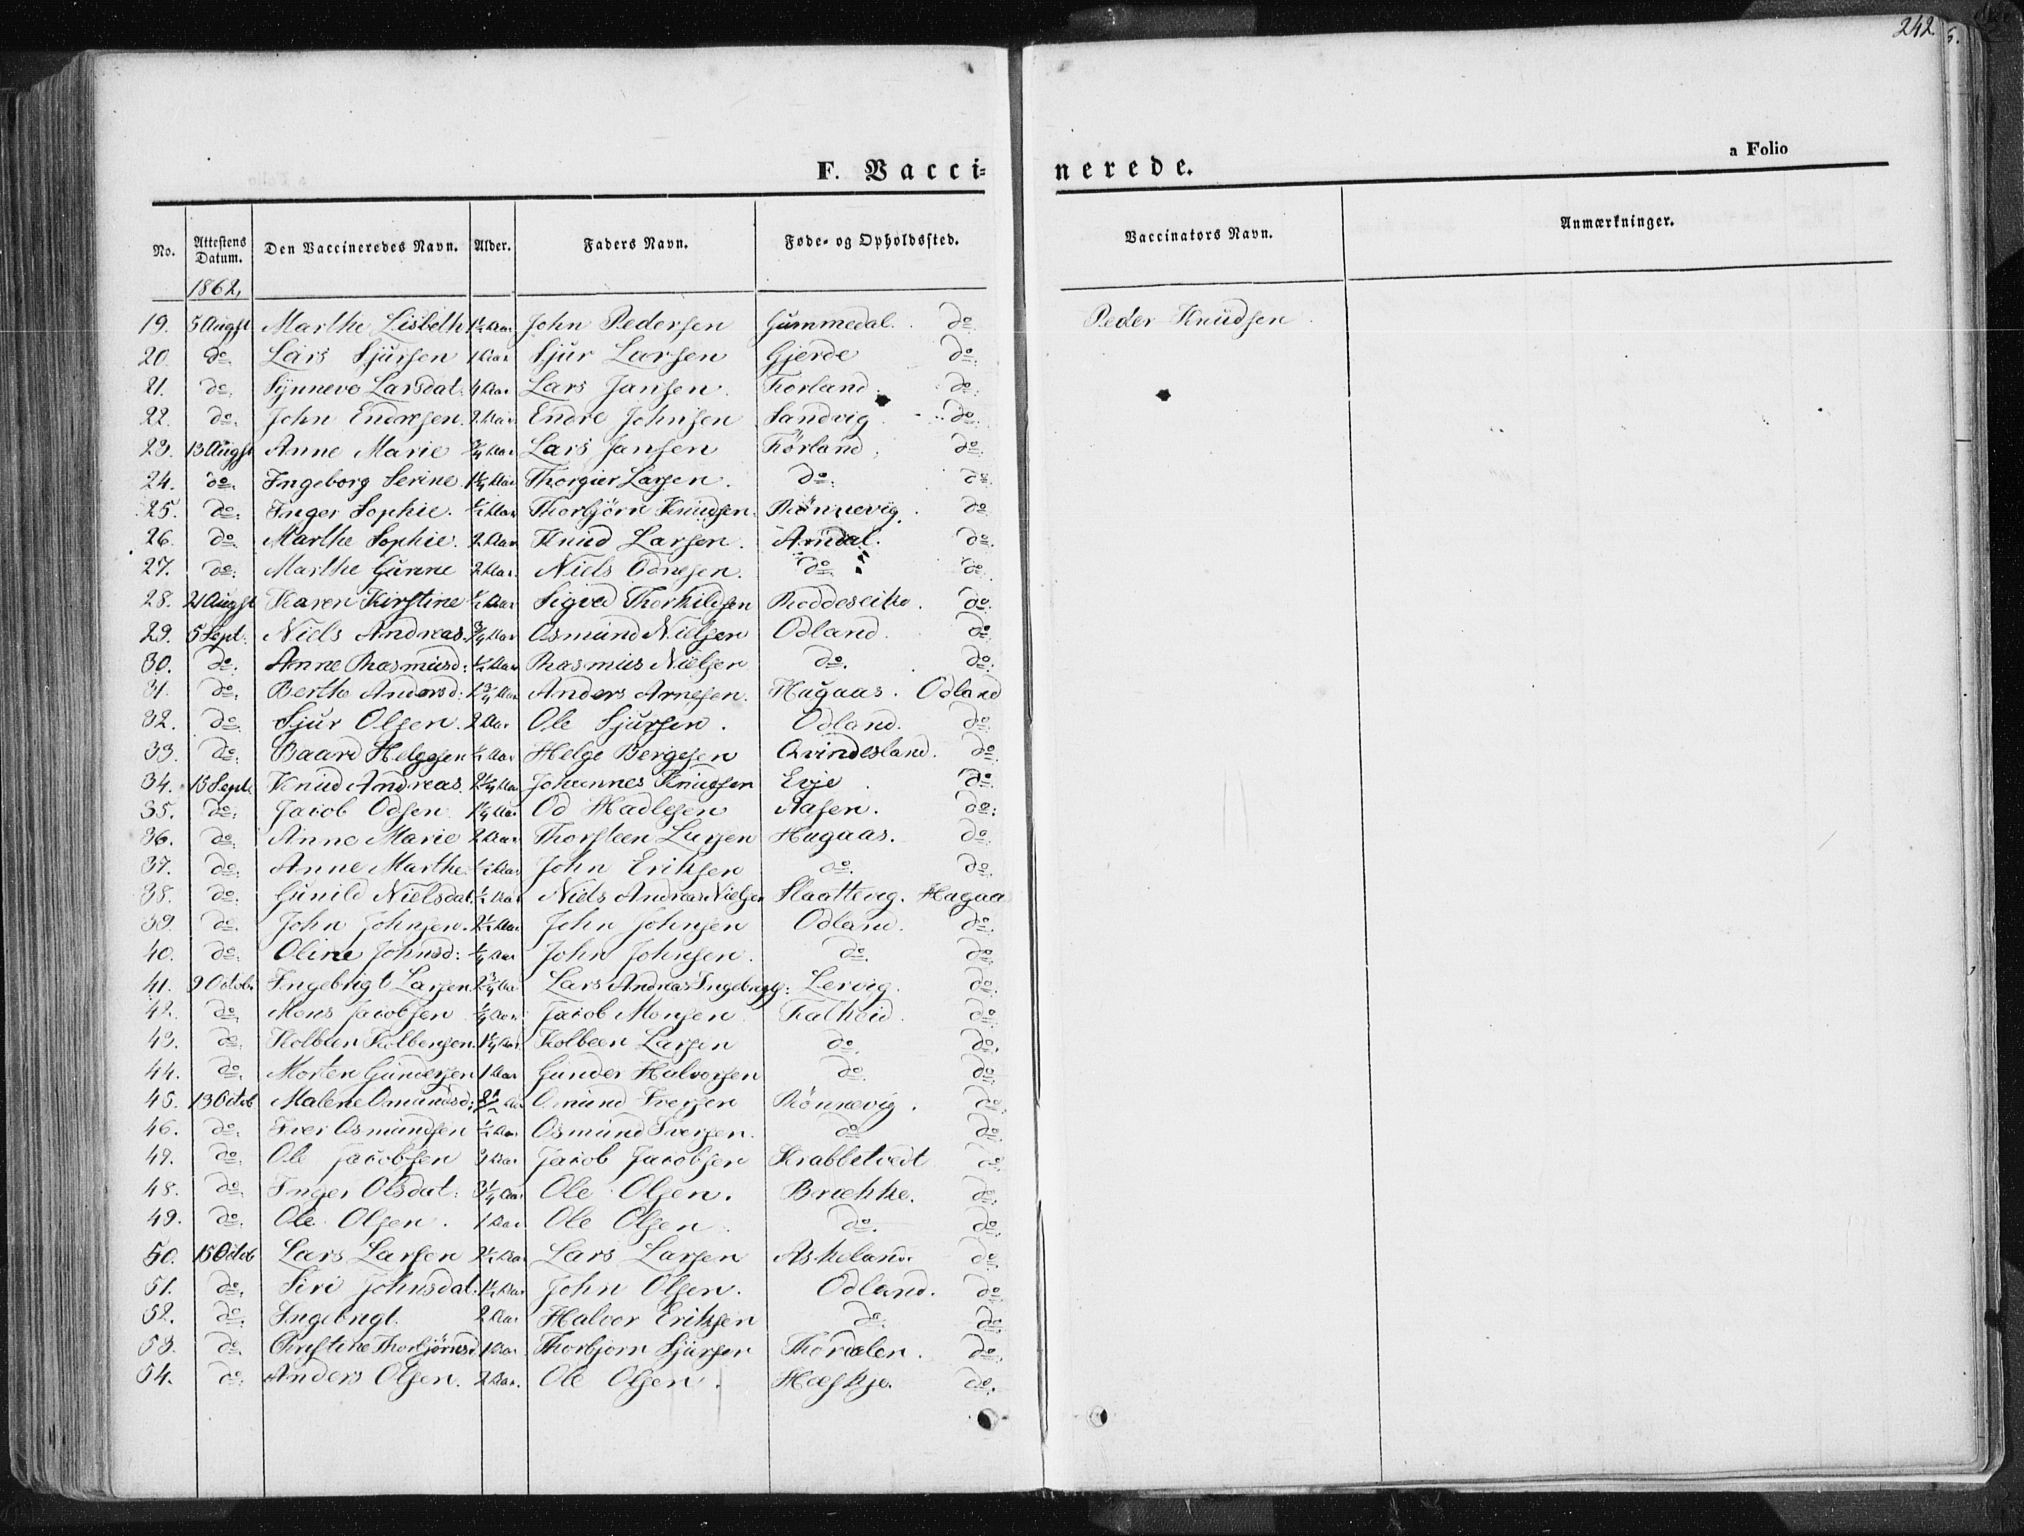 242.
a Folio
F. Vacci- nerede.
No. Attestens Datum. Den Vaccineredes Navn. Alder. Faders Navn. Føde- og Opholdssted. Vaccinators Navn. Anmærkninger.
1862,
19. 5 Augst Marthe Lisbeth 1½ Aar John Pedersen Gummedal. do Peder Knudsen
20. do Lars Sjursen 1 Aar Sjur Larsen Gjerde do
21. do Synneve Larsdat. 4 Aar Lars Jansen Førland do
22. do John Endresen. 2 Aar Endre Johnsen Sandvig do
23. 13 Augst Anne Marie ¾ Aar Lars Jansen Førland. do
24. do Ingeborg Serine Aar Thorgier Larsen. do do
25. do Inger Sophie. ½ Aar Thorbjørn Knudsen Rønnevig. do
26. do Marthe Sophie. 2 Aar Knud Larsen. Arndal. do
27. do Marthe Gurine 2 Aar Niels Odnesen. do do
28. 21 Augst Karen Kirstine ½ Aar Sigved Thorkildsen do
29. 5 Sept. Niels Andreas ¾ Aar Osmund Nielsen Odland. do
30. do Anne Rasmusd: ½ Aar Rasmus Nielsen do do
31. do Berthe Andersd: 1¾ Aar Anders Arnesen. Hagaas. Odland
32. do Sjur Olsen. 2 Aar Ole Sjursen. Odland. do
33. do Baard Helgesen ½ Aar Helge Bergesen Qvindesland. do
34. 15 Sept. Knud Andreas Aar Johannes Knudsen Evje do
35. do Jacob Odsen 1¼ Aar Od Hadlesen Aasen. do
36. do Anne Marie 2 Aar Thorsteen Larsen Hagaas. do
37. do Anne Marthe ½ Aar John Eriksen do do
38. do Gunild Nielsdat. ½ Aar Niels Andreas Nielsen Slaattevig. Hagaa
39. do John Johnsen. 2½ Aar John Johnsen Odland. do
40. do Oline Johnsd: ¼ Aar John Johnsen. do do
41. 9 Octobr Ingebrigt Larsen 2¾ Aar Lars Andreas Ingebrigts: Lervig. do
42. do Mons Jacobsen ¼ Aar Jacob Monsen Falkeid. do
43. do Kolbeen Kolbensen 1¼ Aar Kolbeen Larsen do do
44. do Morten Gundersen 1 Aar Gunder Halvorsen do do
45. 13 Octob Malene Osmundsd: Aar Osmund Iversen Rønnevig. do
46. do Iver Osmundsen ½ Aar Osmund Iversen. do do
47. do Ole Jacobsen 3 Aar Jacob Jacobsen Krabbetvedt do
48. do Inger Olsdat: 3¼ Aar Ole Olsen. Brække. do
49. do Ole Olsen. 1 Aar Ole Olsen do do
50. 15 Octob Lars Larsen 2½ Aar Lars Larsen Askeland. do
51. do Siri Johnsdat. 1½ Aar John Olsen. Odland. do
52. do Ingebrigt. 2 Aar Halvor Eriksen do do
53. do Christine Thorbjørnsd. 1 Aar Thorbjørn Sjursen do
54. do Anders Olsen. 2 Aar. Ole Olsen. do